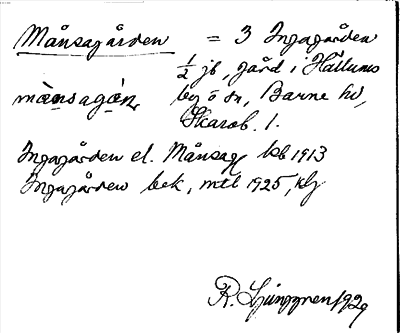 Månsagården = 3 Ingagården
½ jb, gård i Hällums
månsagá̀n by o sn, Barne hd,
Skarab. l.
Ingagården el. Månsag kb 1913
Ingagården bek, mtl 1925, klg
R. Ljunggren 1929